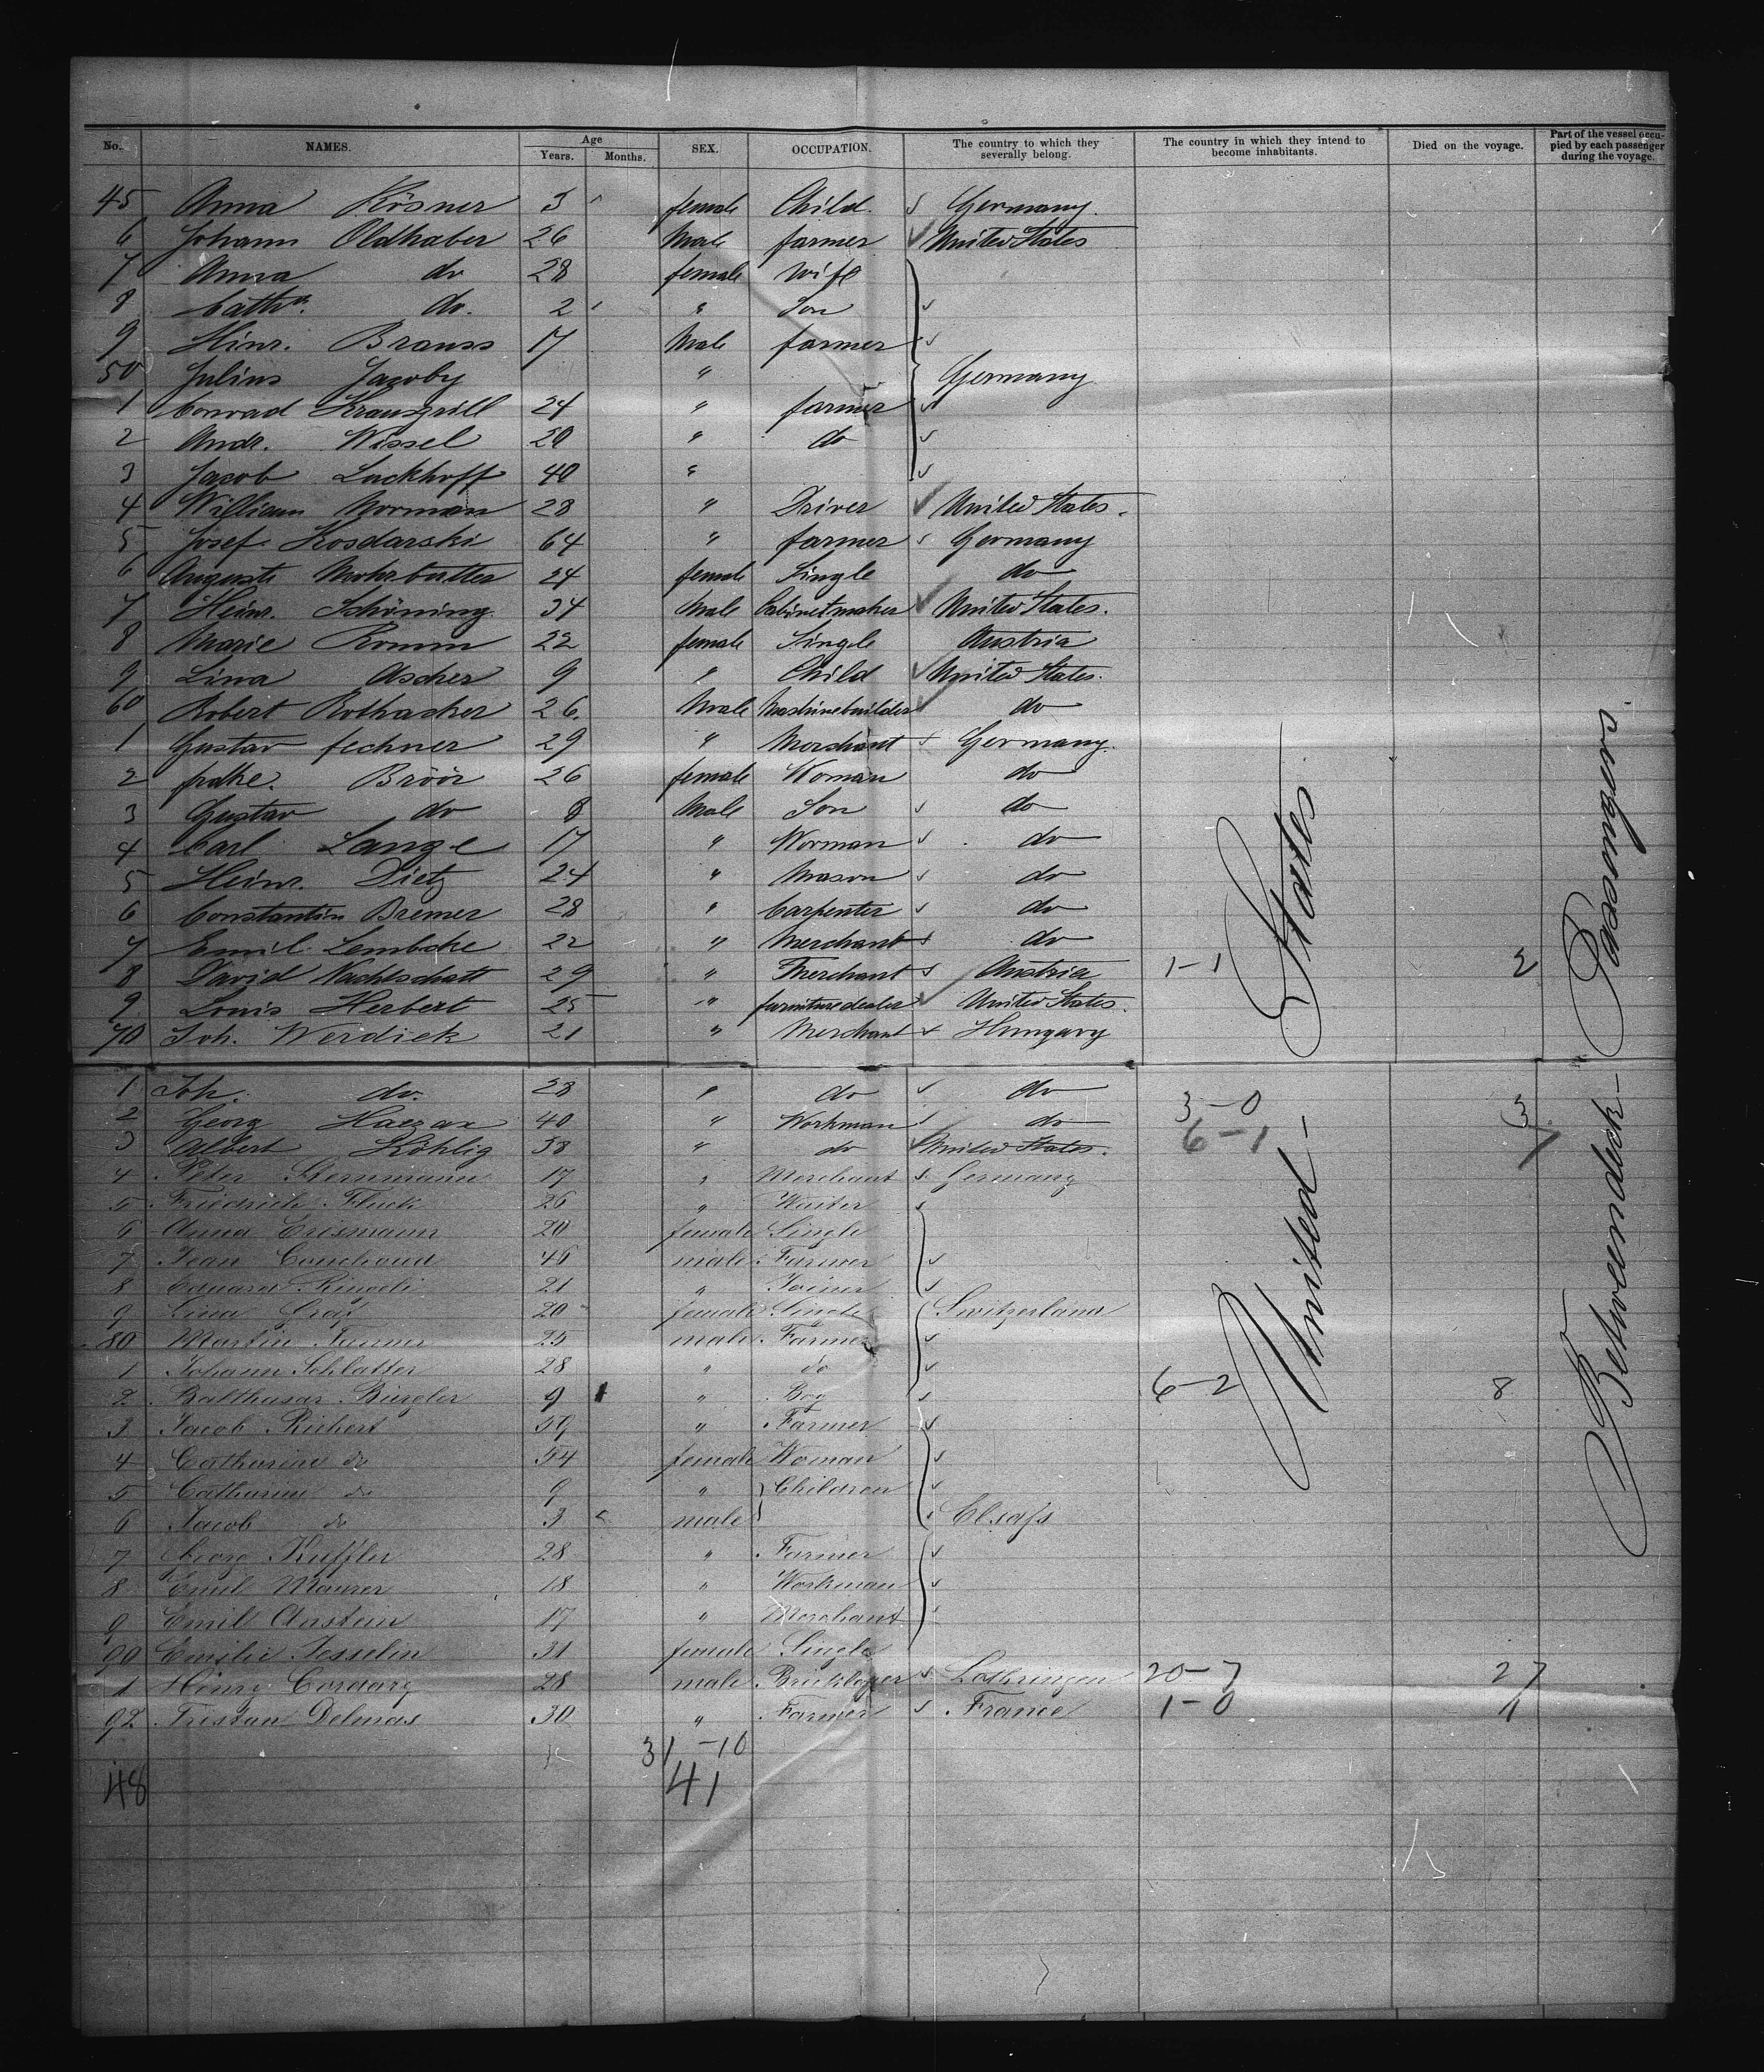 No. NAMES. Age Years. Months. SEX. OCCUPATION. The country to which they severally belong. The country in which they intend to become inhabitants. Died on the voyage. Part of the vessel occupied by each passenger during the voyage.
45 Anna Kösner 3 female Child. Germany.
6 Johann Oldhaber 26 Male farmer United States
7 Anna do 28 female wife
8 Cathr. do. 2 " Son
9 Hinr. Brauss 17 Male farmer
50 Julius Jacoby " Germany
1 Conrad Krausgrill 24 " farmer
2 Andr. Wissel 20 " do
3 Jacob Luckhoff 40 "
4 William Norman 28 " Driver United States.
5 Josef Kosdarski 64 " farmer Germany
6 Auguste 24 female Single do
7 Heinr. Schöning 34 Male Cabinetmaker United States.
8 Marie 22 female Single Austria
9 Lina Ascher 9 " Child United States.
60 Robert Rothacker 26. Male Maschinebuilder do
1 Gustav fechner 29 " Merchant Germany.
2 Bröör 26 female Woman do
3 Gustav do 8 Male Son do
4 Carl Lange 17 " Worman do
5 Heinr. Dietz 24 " Mason do
6 Constantin Bremer 28 " Carpenter do
7 Emil Lembcke 22 " Merchant do
8 David Nachtschatt 29 " Merchant Austria 1-1 2
9 Louis Herbert 25 " furnituredealer United States.
70 Joh. Werdick 21 " Merchant Hungary
1 Joh. do. 28 " do do
2 Georg 40 " Workman do 3-0 3
3 Albert Köhlig 38 " do United States. 6-1 7
4 Peter Sternmann 17 " Merchant Germany
5 Friedrich Fluck 26 " Waiter
6 Anna Erismann 20 female Single
7 Jean Couchoud 46 male Farmer
8 Eduard 21 " Joiner
9 Lina Graf 20 female Single Switzerland
80 Martin Tanner 25 male Farmer
1 Johann Schlatter 28 " do
2 Balthasar 9 " Boy 6-2 8
3 Jacob Richert 59 " Farmer
4 Catharine do 54 female Woman
5 Catharine do 9 " Children
6 Jacob do 3 male Elsass
7 Georg Kuffler 28 " Farmer
8 Emil Maurer 18 " Workman
9 Emil Anstein 17 " Merchant
90 Emilie Josselin 31 female Single
1 Henry 28 male Bricklayer Lothringen 20-7 27
92 Tristan Delmas 30 " Farmer France 1-0 1
31-10
48 41
United States
Betweendeck Passengers.